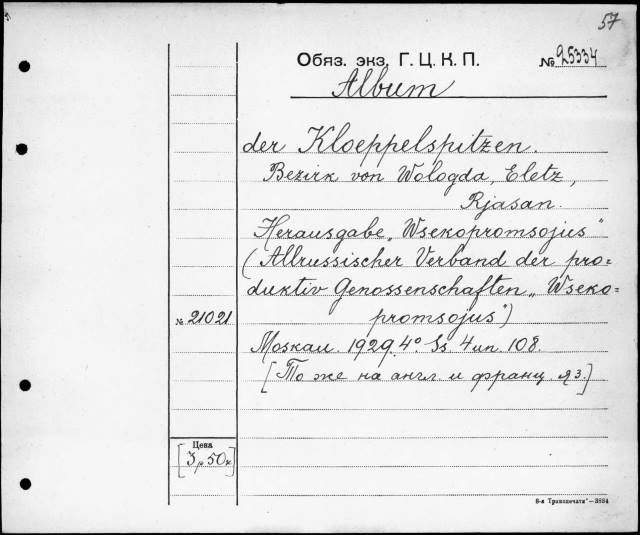 57
Обяз. экз. Г. Ц. К. П. № 25334
Album
der Kloeppelspitzen.
Bezirk von Wologda, Eletz,
Rjasan.
Herausgabe „Wsekopromsojus"
(Allrussischer Verband der pro=
duktiv Genossenschaften „Wseko=
№ 21021 promsojus")
Moskau. 1929. 4° Ss. 4 un. 108.
[То же на англ. и франц. яз.]
Цена
[3 р 50к]
8-я Транспечати"—3834